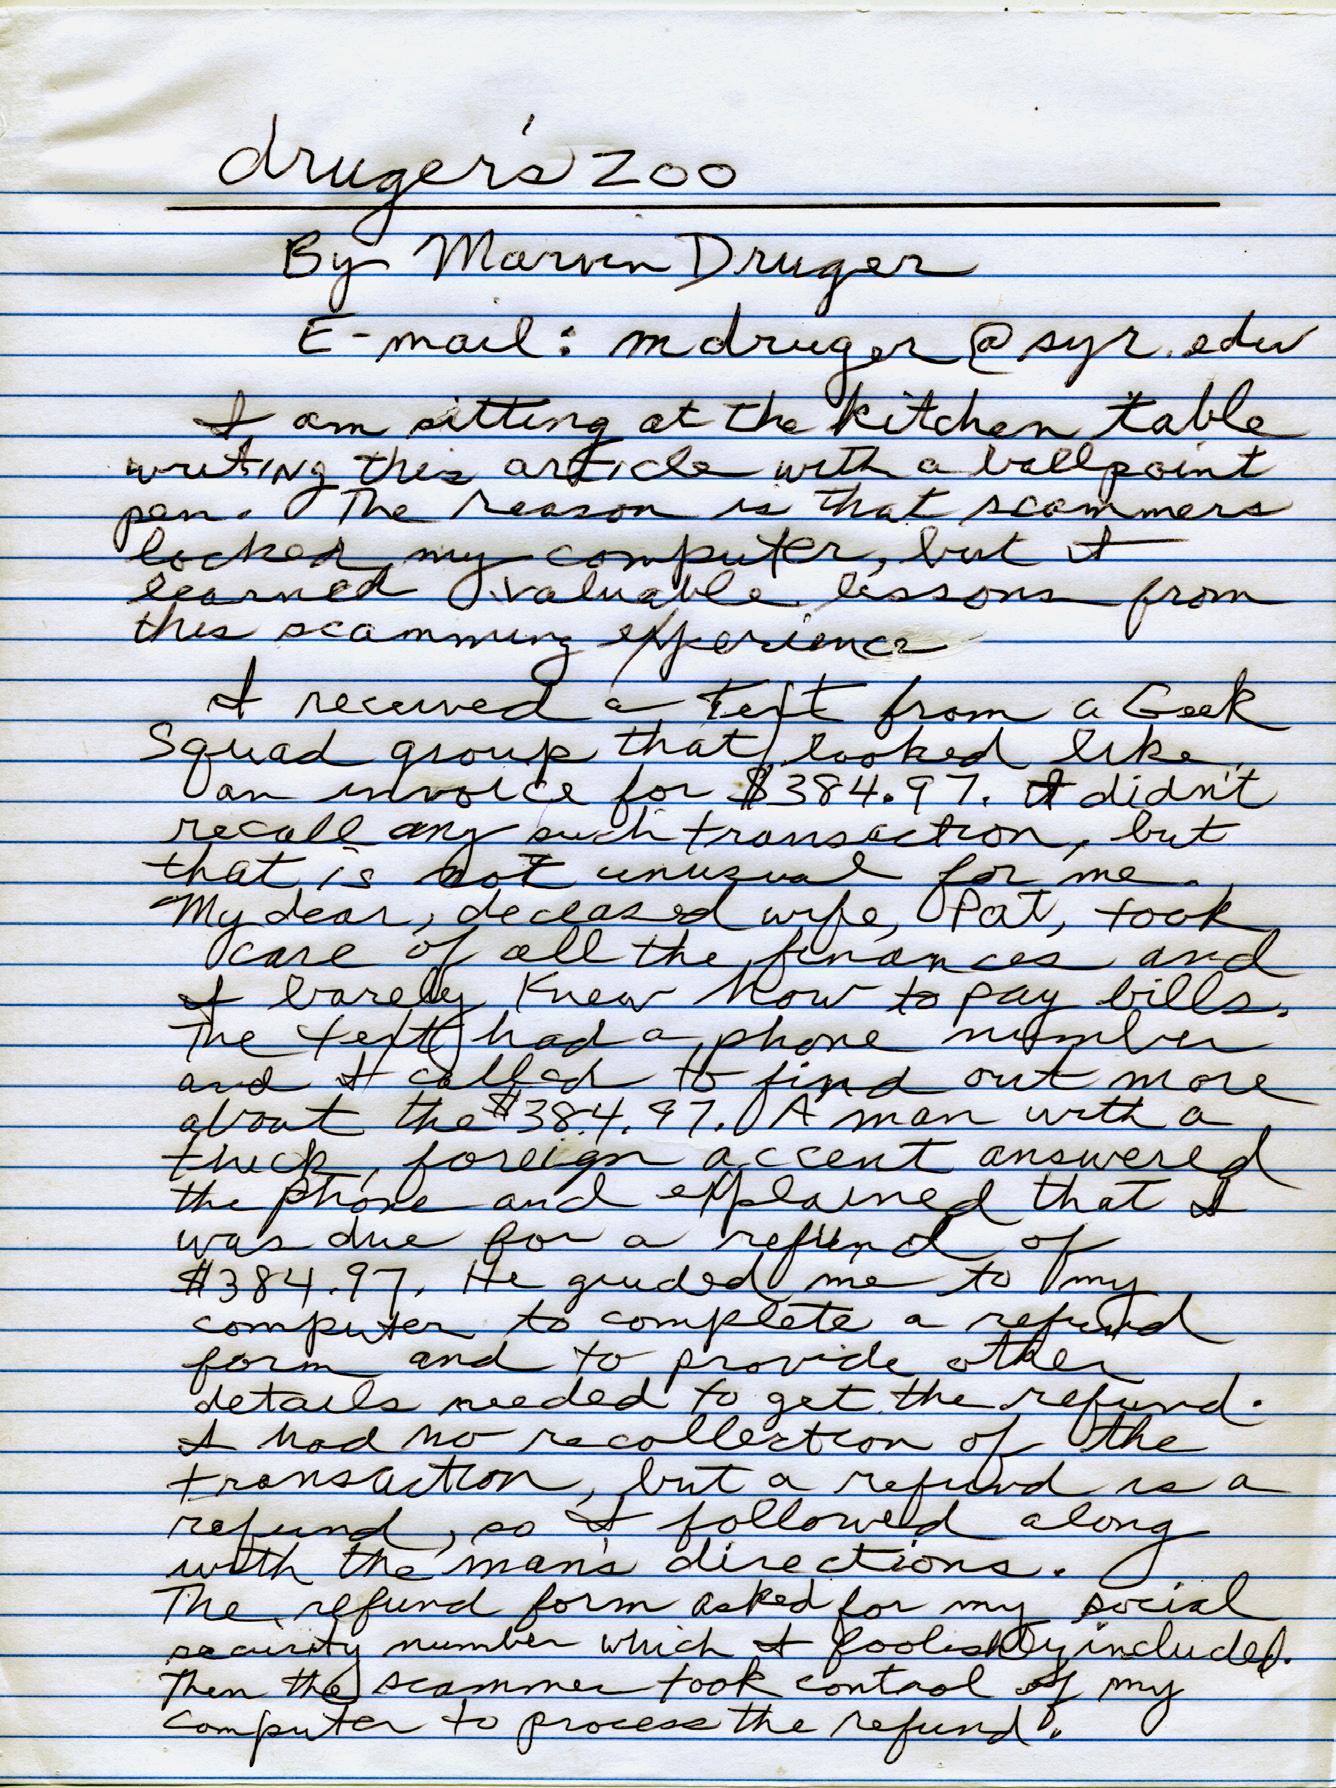 druger's zoo
By Marvin Druger
E-mail: mdruger@syr.edu
I am sitting at the kitchen table
writing this article with a ballpoint
pen. The reason is that scammers
locked my computer, but I
learned valuable lessons from
this scamming experience
I received a text from a Geek
Squad group that looked like
an invoice for $384.97. I didn't
recall any such transaction, but
that is not unusual for me.
My dear, deceased wife, Pat, took
care of all the finances and
I barely knew how to pay bills.
The text had a phone number
and I called to find out more
about the $384.97. A man with a
thick, foreign accent answered
the phone and explained that I
was due for a refund of
$384.97. He guided me to my
computer to complete a refund
form and to provide other
details needed to get the refund.
I had no recollection of the
transaction, but a refund is a
refund, so I followed along
with the man's directions.
The refund form asked for my social
security number which I foolishly included.
Then the scammer took control of my
computer to process the refund.